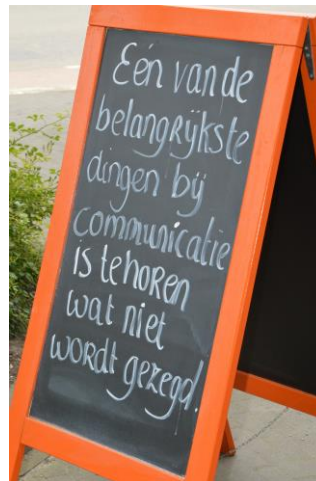 Eén van de
belangrijkste
dingen bij
communicatie
is te horen
wat niet
wordt gezegd.